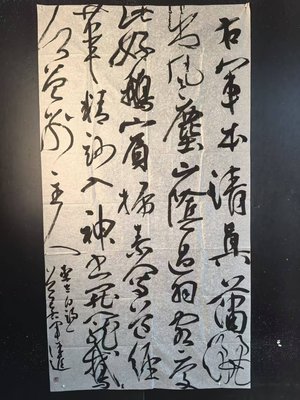 右軍本清真瀟灑
出風塵山陰過羽客愛
此好鵝賓掃素寫道經
筆精妙入神書罷籠鵝
去何曾別主人